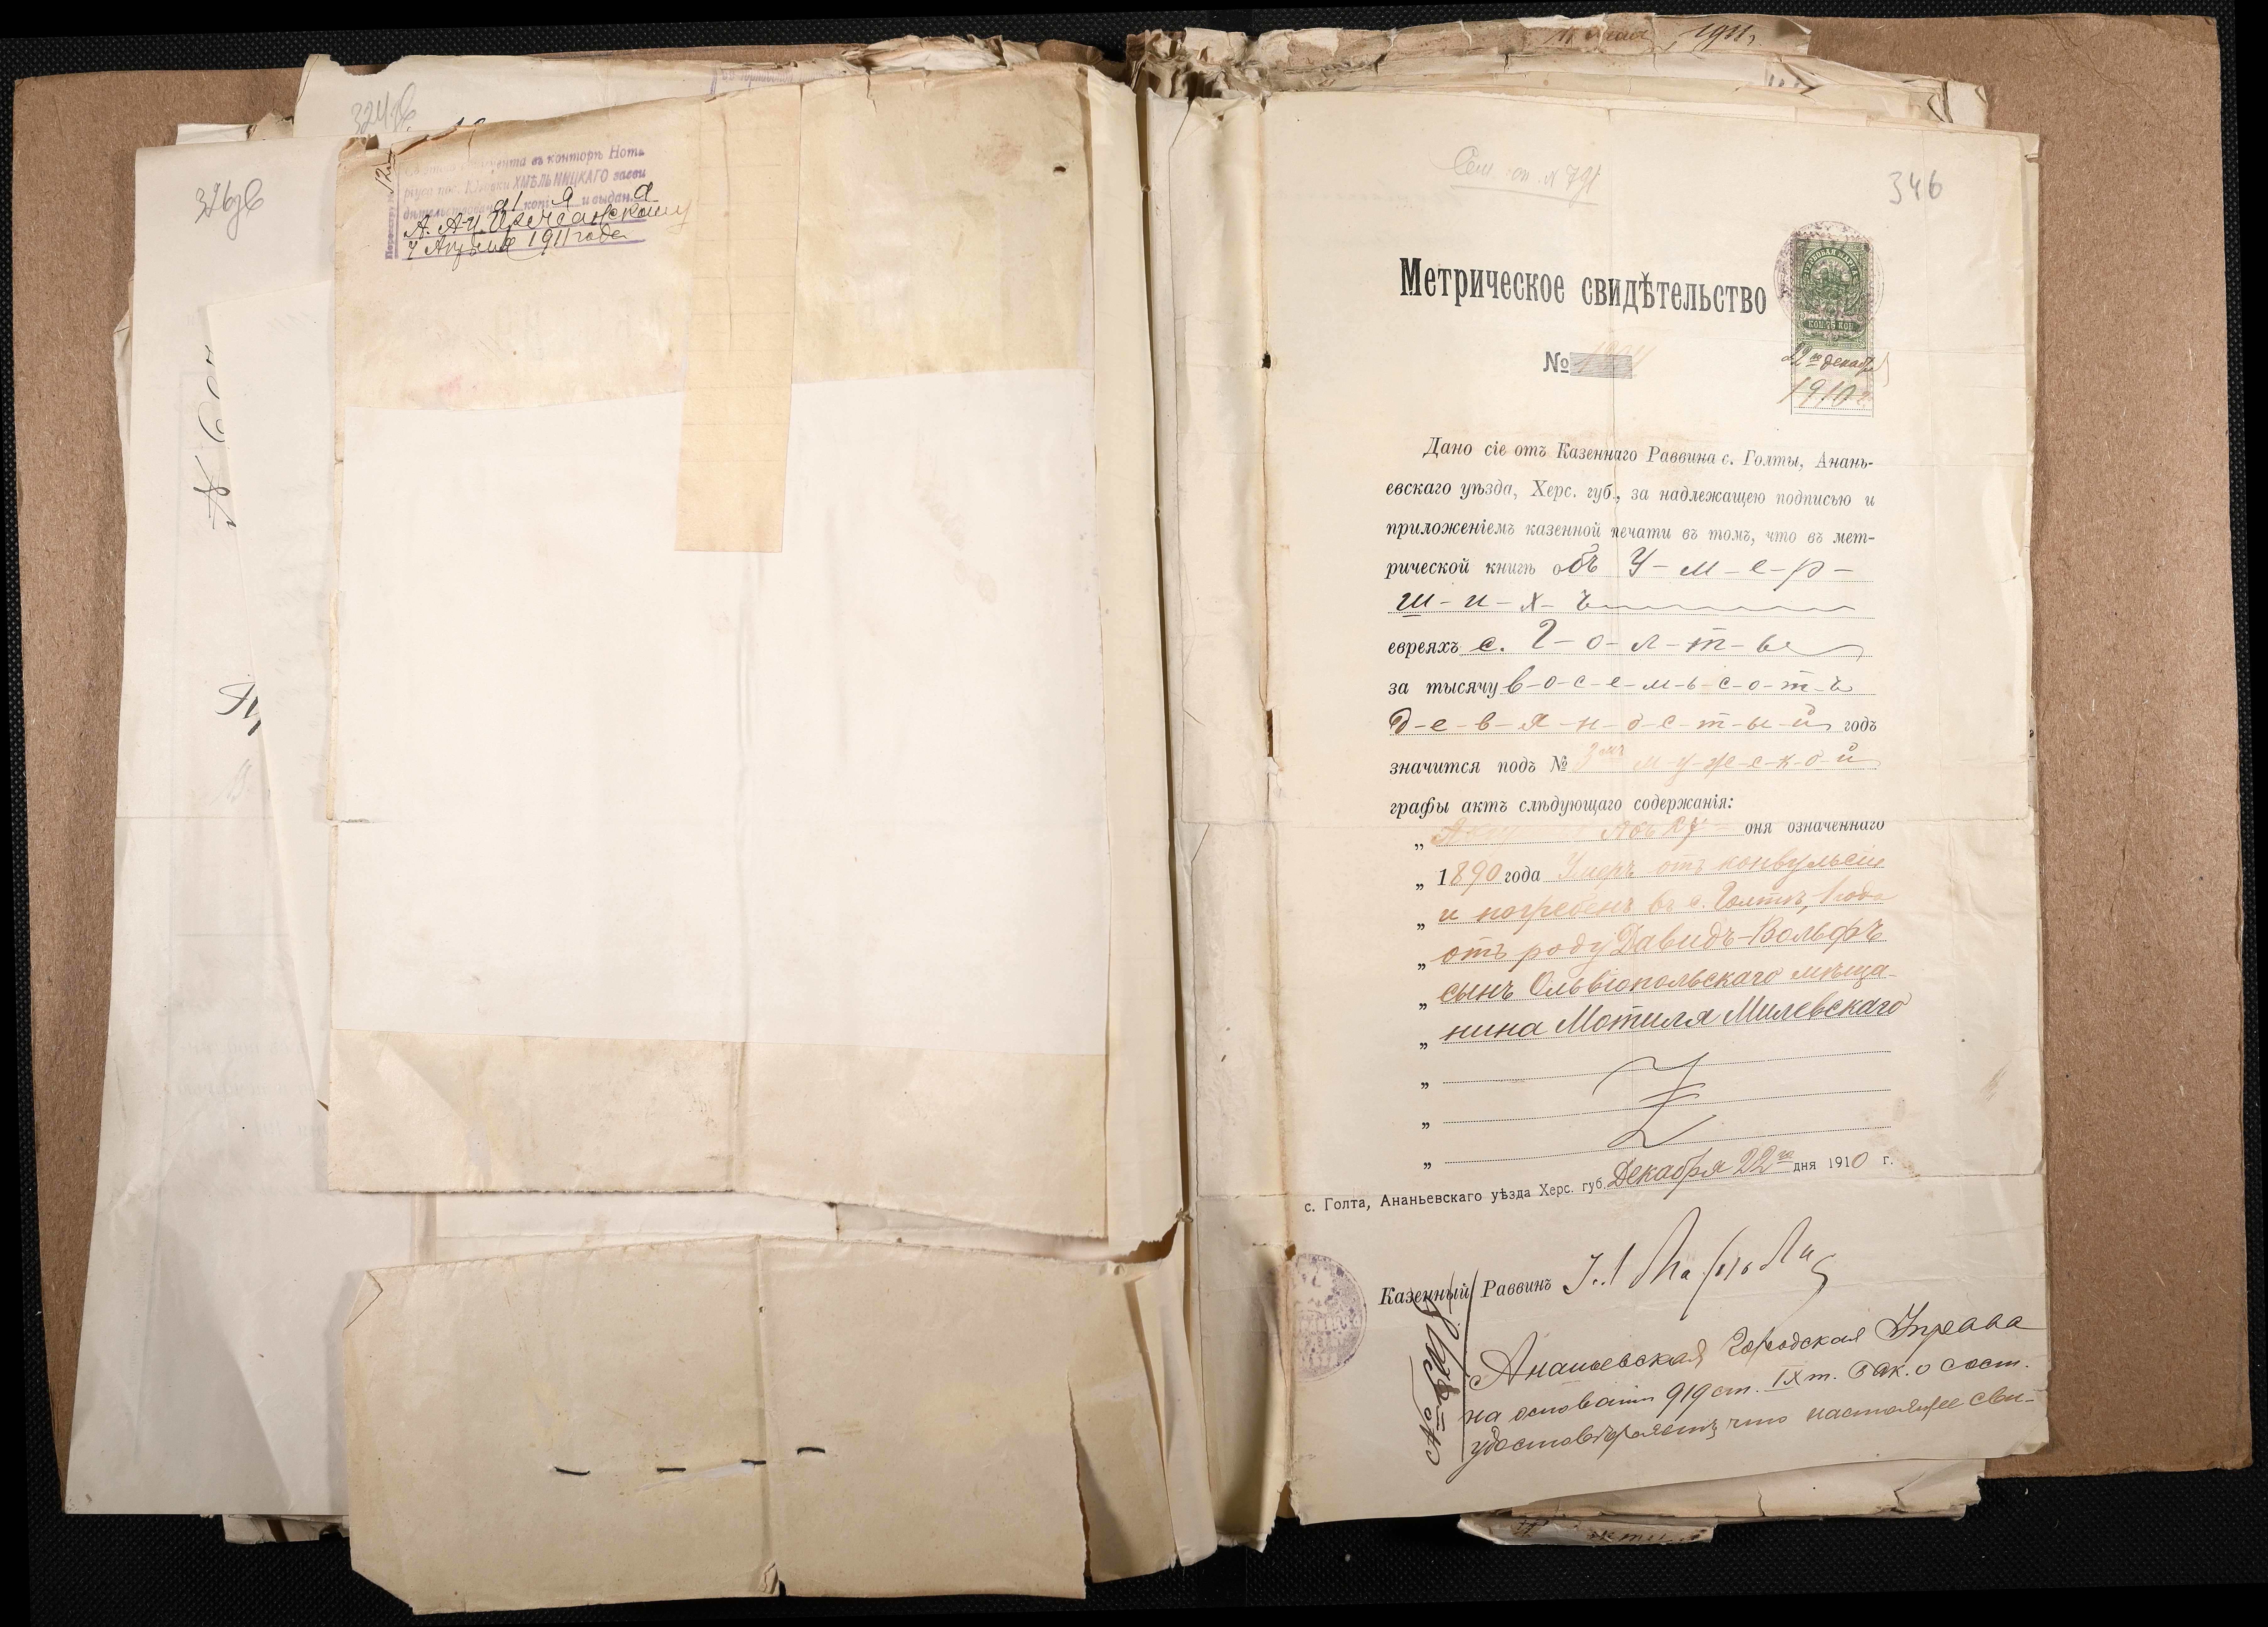 324об.
326об
Съ этого документа въ конторѣ Нота
ріуса пос. Юзовки ХМѢЛЬНИЦКАГО засви
дѣтельствована 1 копія и выдана
А. А-И.
4 Апрѣля 1911 года
1911 г.
346
Метрическое свидѣтельство
КОП. 75 КОП.
22го декабря
1910 г.
№
Дано сіе отъ Казеннаго Раввина с. Голты, Анань-
евскаго уѣзда, Херс. губ., за надлежащею подписью и
приложеніемъ казенной печати въ томъ, что въ мет-
рической книгѣ объ У-м-е-р-
ш-и-х-ъ
евреяхъ с. Г-о-л-т-ы
за тысячу в-о-с-е-м-ь-с-о-т-ъ
д-е-в-я-н-о-с-т-ы-й годъ
значится подъ № 3мъ м-у-ж-с-к-о-й
графы актъ слѣдующаго содержанія:
„ 27 дня означеннаго
„ 1890 года Умеръ отъ конвульсіи
„ и погребенъ въ с. Голтѣ, 1 года
„ отъ роду Давидъ-Вольфъ
„ сынъ Ольвіопольскаго мѣща-
„ нина Мотиля Милевскаго
„
„
„
с. Голта, Ананьевскаго уѣзда Херс. губ. Декабря 22го дня 1910 г.
Казенный Раввинъ
Ананьевская Городская Управа
на основаніи 919 ст. IX т. Зак. о сост.
удостовѣряетъ, что настоящее сви-